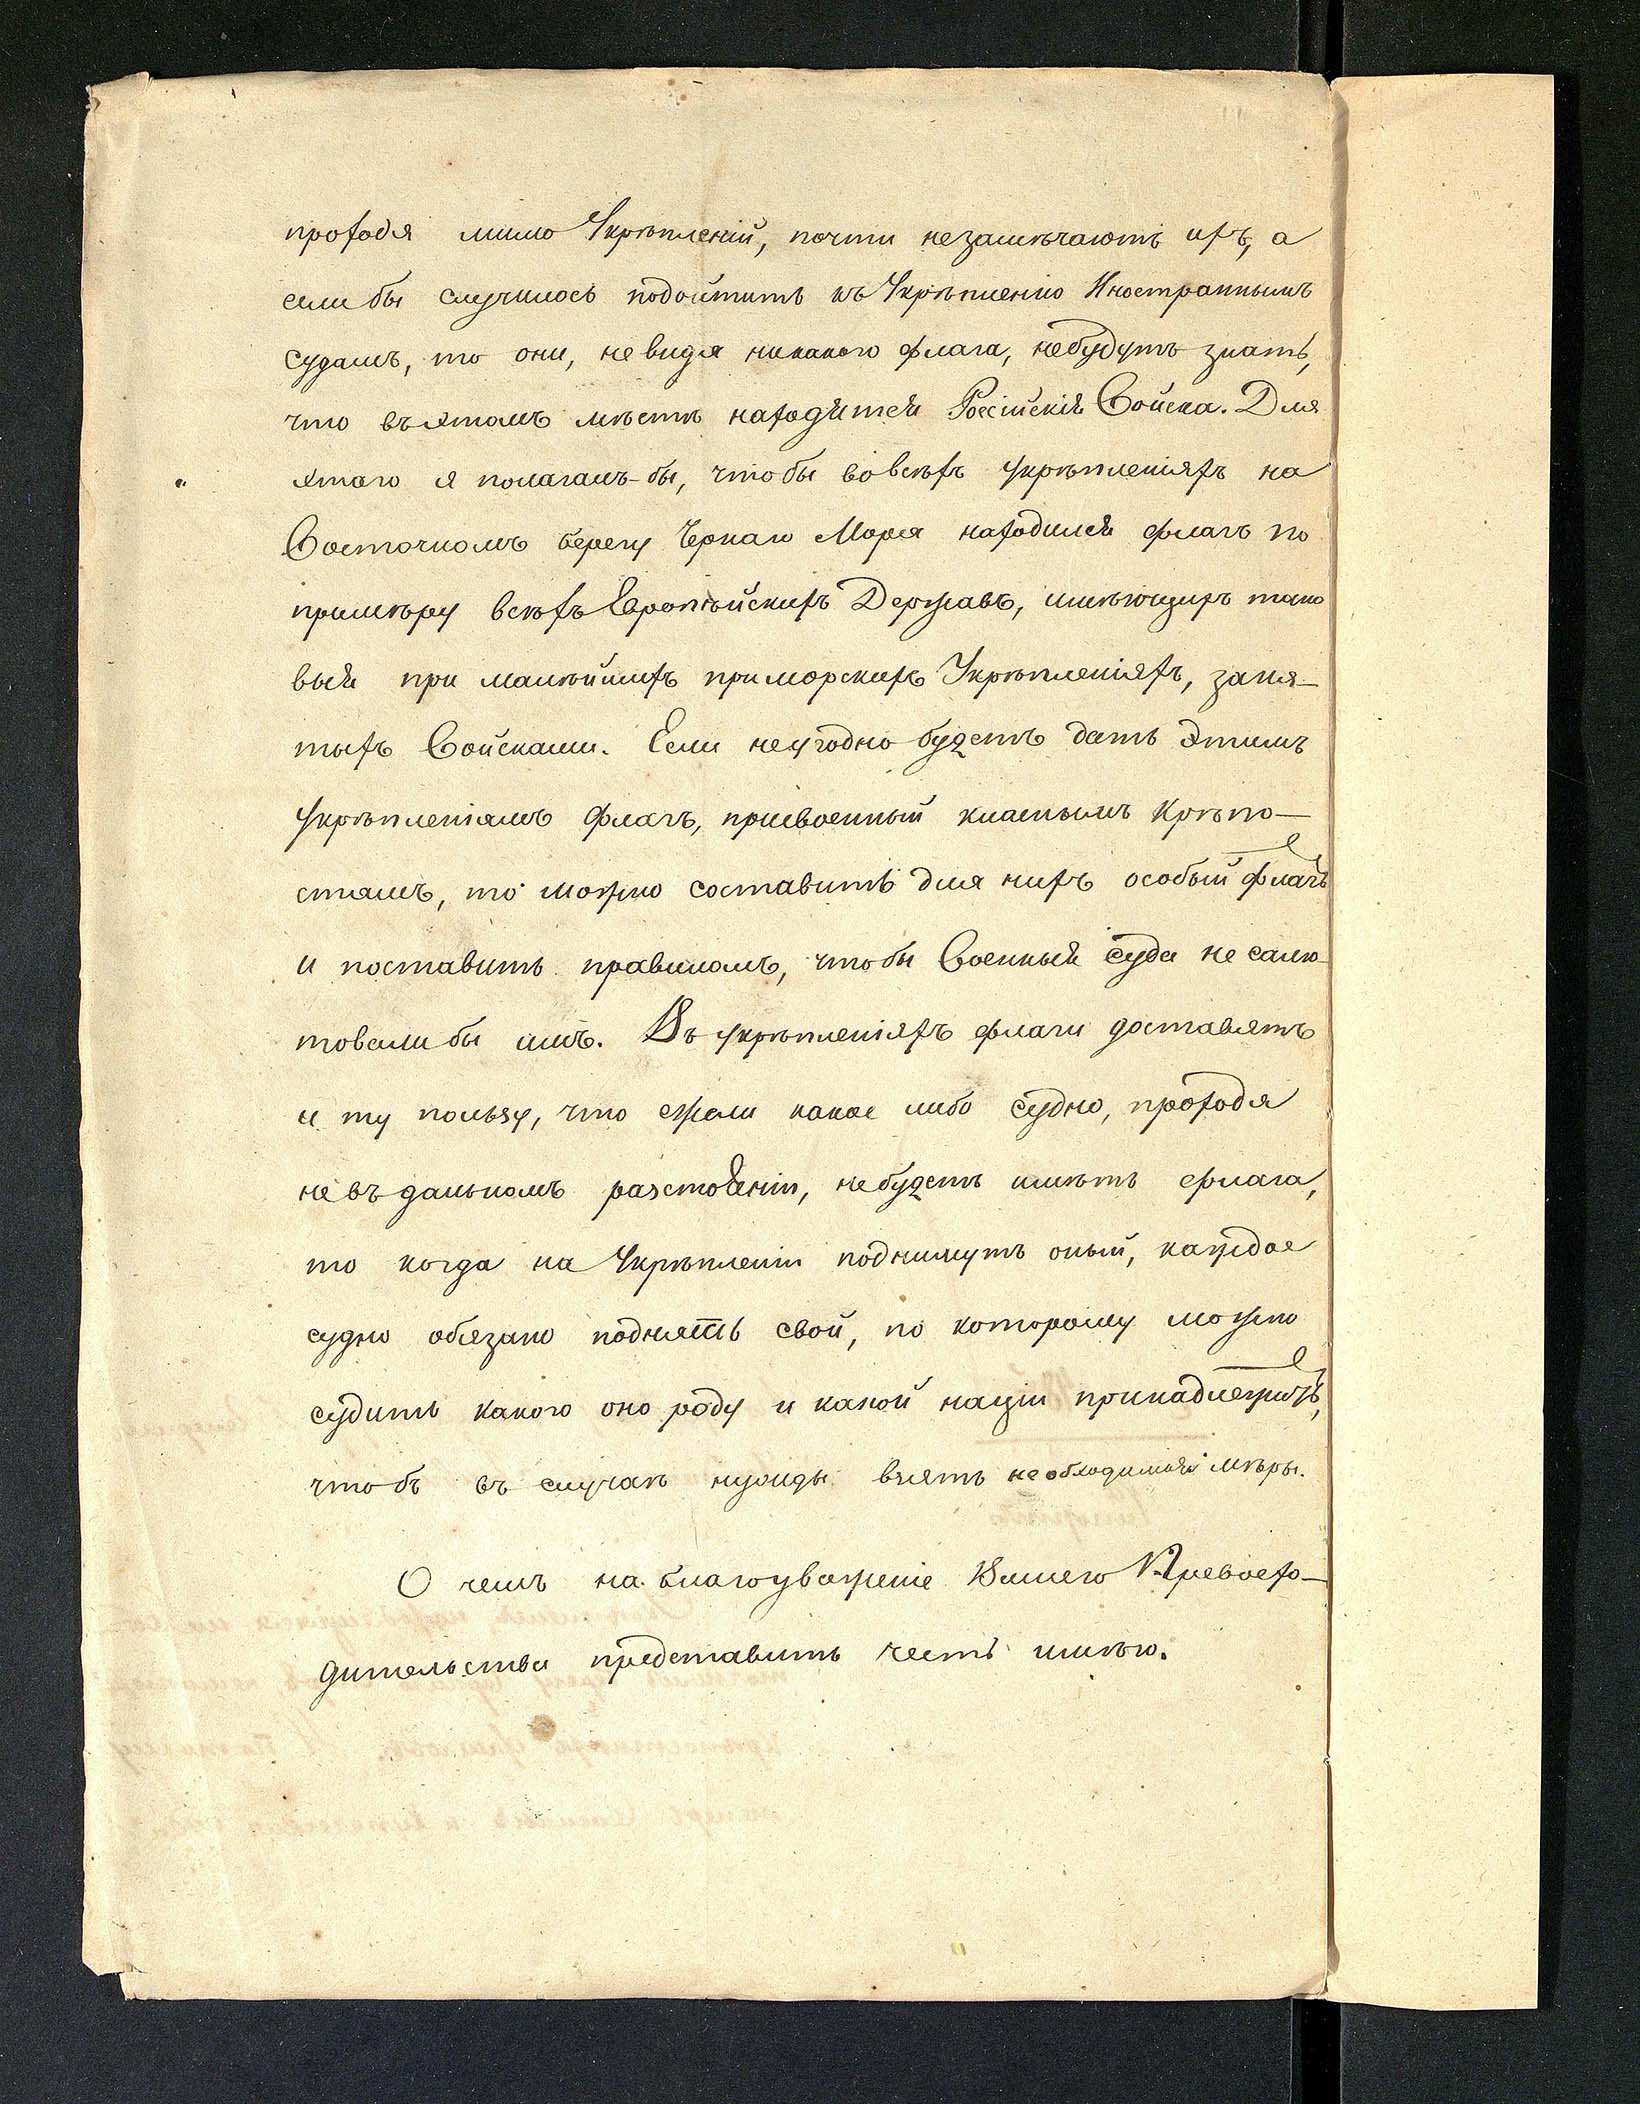 проходя мимо Укрѣпленій, почти незамѣчаютъ ихъ, а
если бы случилось подойтить къ Укрѣпленію Иностраннымъ
судамъ, то они, не видя никакого флага, небудутъ знать,
что въ этомъ мѣстѣ находятся Россійскія Войска. Для
этаго я полагалъ-бы, чтобы во всѣхъ укрѣпленіяхъ на
Восточномъ берегу Чернаго Моря находился флагъ по
примѣру всѣхъ Европѣйскихъ Державъ, имѣющихъ тако
выя при малѣйшихъ приморскихъ Укрѣпленіяхъ, заня-
тыхъ Войсками. Если неугодно будетъ дать этимъ
укрѣпленіямъ флагъ, присвоенный класнымъ Крѣпо-
стямъ, то можно составить для нихъ особый флагъ
и поставить правиломъ, чтобы Военныя суда не салю-
товали бы имъ. Въ укрѣпленіяхъ флаги доставятъ
и ту пользу, что ежели какое либо судно, проходя
не въ дальномъ разстояніи, небудетъ имѣть флага,
то когда на Укрѣпленіи поднимутъ оный, каждое
судно обязано поднять свой, по которому можно
судить какого оно роду и какой націи принадлежитъ,
чтобъ въ случаѣ нужды взять необходимыя мѣры.
О чемъ на благоуваженіе Вашего Превосхо-
дительства представить честь имѣю.